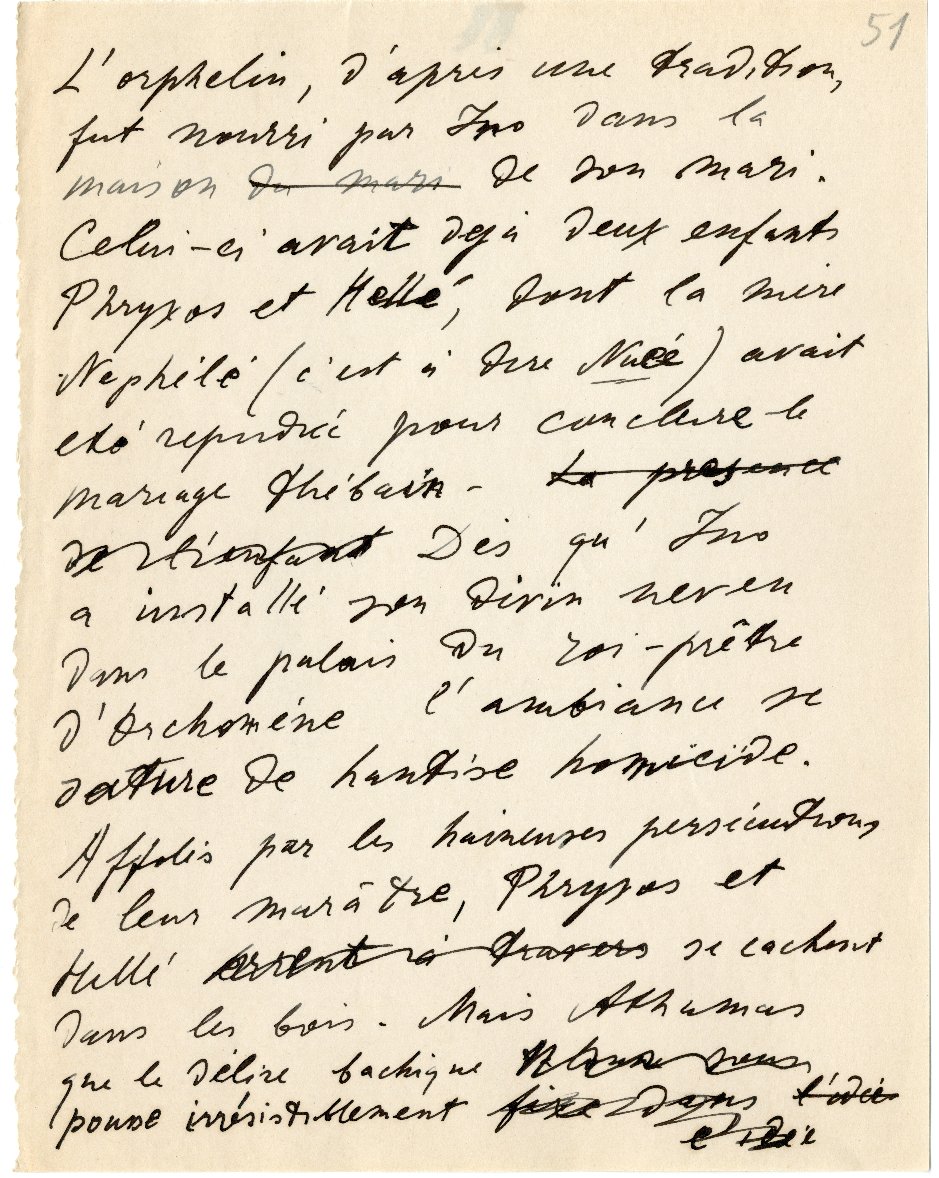 51
L'orphelin, d'après une tradition,
fut nourri par Ino dans la
maison du mari de son mari.
Celui-ci avait dejà deux enfants
Phryxos et Hellé, dont la mère
Nephélé (c'est à dire Nuéé) avait
eté repudiée pour conclure le
mariage thébain - La presence
de l'enfant Dès qu'Ino
a installé son divin neveu
dans le palais du roi-prêtre
d'Orchomène l'ambiance se
sature de hantise homicide.
Affolés par les haineuses persécutions
de leur marâtre, Phryxos et
Hellé errent à travers se cachent
dans les bois. Mais Athamas
que le délire bachique
pousse irrésistiblement fixe dans l'idée